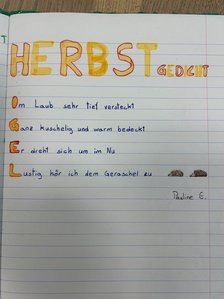 HERBST GEDICHT
Im Laub sehr tief versteckt
Ganz kuschelig und warm bedeckt
Er dreht sich um im Nu
Lustig hör ich dem Geraschel zu
Pauline E.